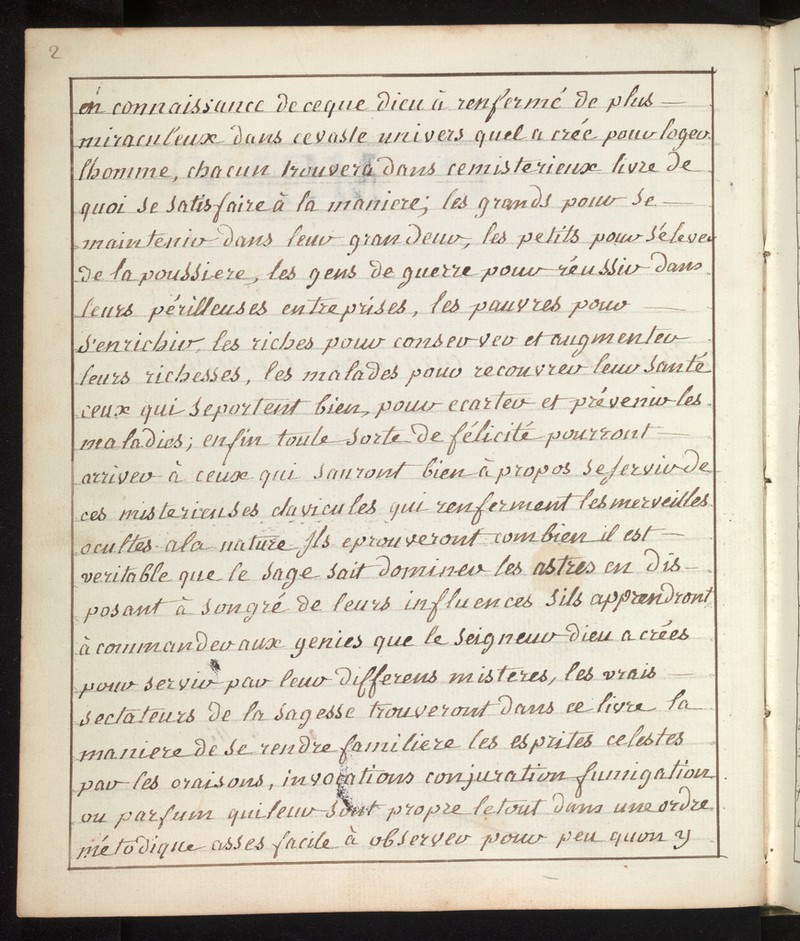 2
en connaissance de ceque dieu à renfermé de plus —
miraculeux dans cevaste univers quel a créé pour loger
lhomme, chacun trouvera dans cemisterieux livre de
quoi se satisfaire à la maniere; les grands pour se —
maintenir dans leur grandeur, les petits pour s'élever
de la poussiere, les gens de guerre pour réussir dans
leurs périlleuses entreprises, les pauvres pour —
s'enrichir, les riches pour conserver et augmenter
leurs richesses, les malades pour recouvrer leur santé
ceux qui seportent bien, pour ecarter et prévenir les
maladies; enfin toute sorte de félicité pourront —
arriver à ceux qui sauront bien à propos seservir de
ces misterieuses clavicules qui renferment les merveilles
ocultes ala nature Ils eprouveront combien il est —
veritable que le sage sait dominer les astres en dis-
posant à songré de leurs influences sils apprendront
à commander aux genies que le seigneur dieu a créés
pour servir par leur differens misteres, les vrais —
sectateurs de la sagesse trouveront dans ce livre la
maniere de se rendre familiere les esprites celestes
par les oraisons, invocations conjuration fumigation
ou parfum quileur sont propre letout dans une ordre
métodique asses facile à observer pour peu quon y